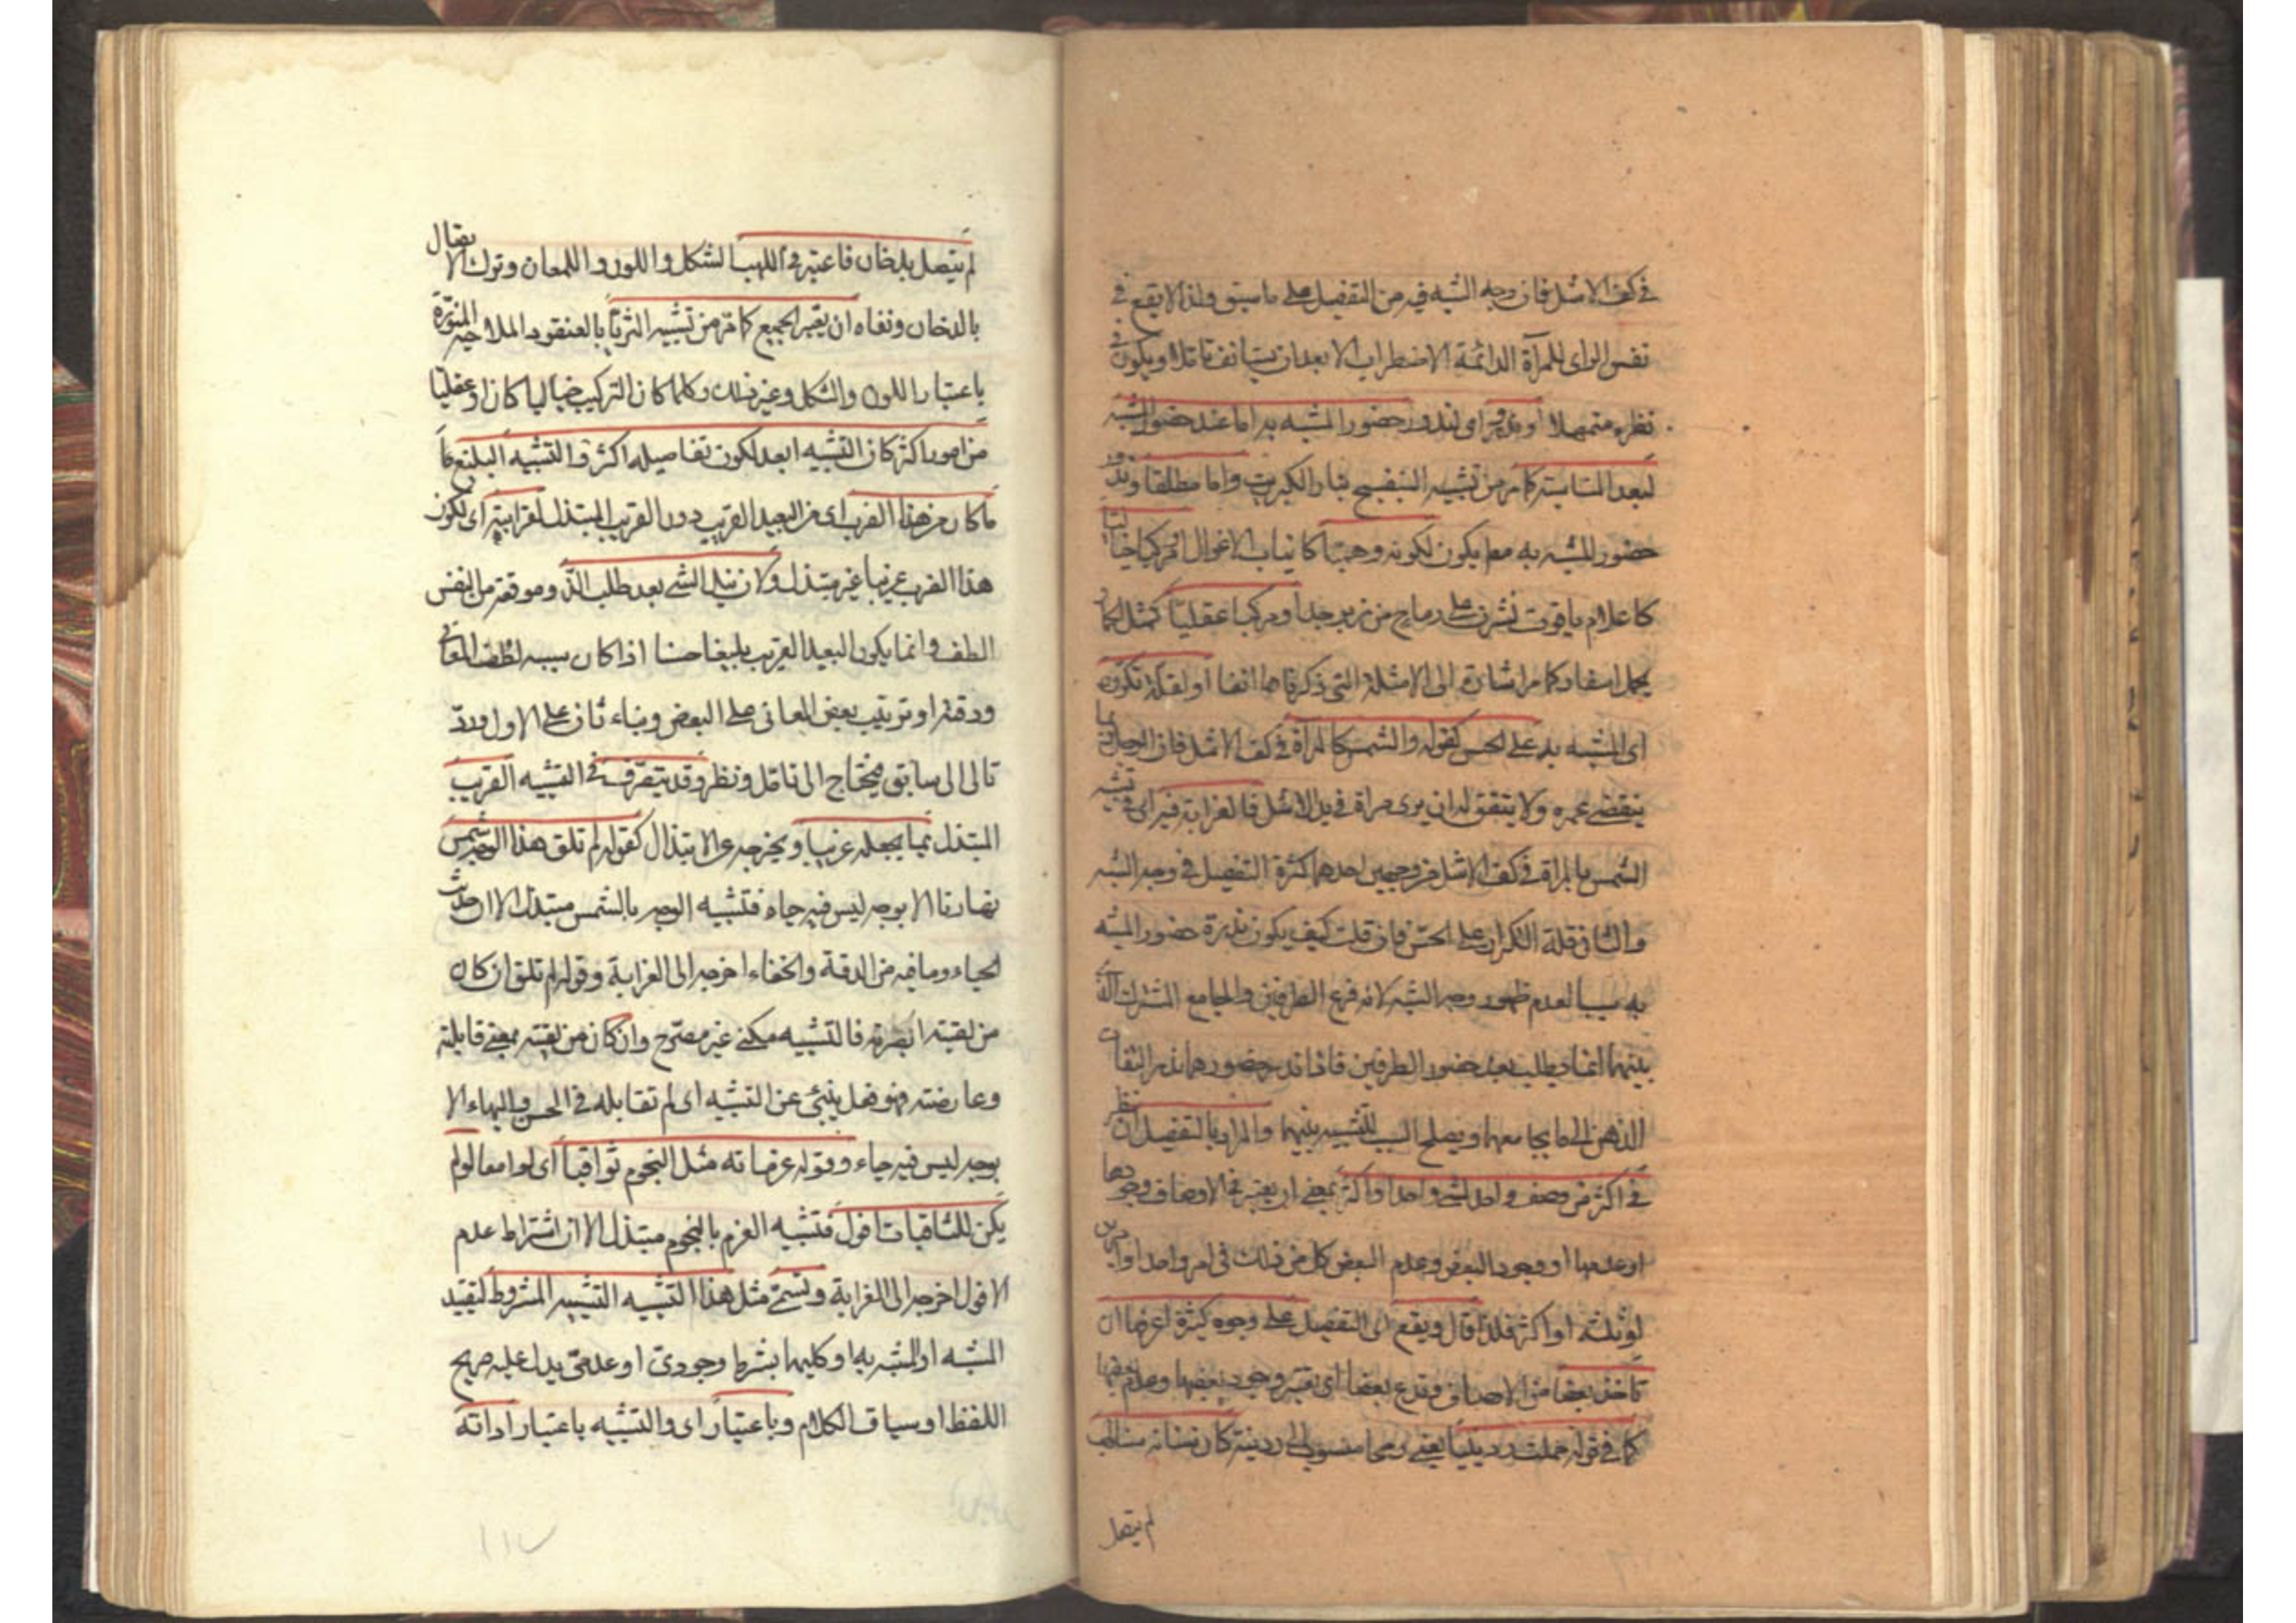 في كف الاشل فان وجه الشبه فيه من التفصيل على ما سبق ولذا لا يقع في
نفس الرائ للمرآة الدائمة الاضطراب الا بعد ان يستانف تاملا ويكون في
نظره متمهلا او ندور اى لندور حضور المشبه به اما عند حضور المشبه
لبعد المناسبة كما مر من تشبيه البنفسج بنار الكبريت واما مطلقا وندور
حضور المشبه به مطلقا يكون لكونه وهميا كانياب الاغوال او مركبا خياليا
كاعلام ياقوت نشرن على رماح من زبرجد او مركبا عقليا كمثل الحمار
يحمل اسفارا كما مر اشارة الى الامثلة التي ذكرناها انفا او لقلة تكرره
اى المشبه به على الحس كقوله والشمس كالمرآة في كف الاشل فان الرجل ربما
ينقضى عمره ولا يتفق له ان يرى مرآة في يد الاشل فالغرابة فيه اى في تشبيه
الشمس بالمرآة في كف الاشل من وجهين احدهما كثرة التفصيل في وجه الشبه
والثانى قلة التكرار على الحس فان قلت كيف يكون ندرة حضور المشبه
به سببا لعدم ظهور وجه الشبه لانه فرع الطرفين والجامع المشترك الذى
بينهما انما يطلب بعد حضور الطرفين فاذا ندر حضورهما ندر التفات
الذهن الى ما يجمعهما ويصلح سببا للتشبيه بينهما والمراد بالتفصيل ان ينظر
في اكثر من وصف واحد لشئ واحد او اكثر بمعنى ان يعتبر في الاوصاف وجودها
او عدمها او وجود البعض وعدم البعض كل من ذلك في امر واحد او امرين
او ثلثة او اكثر فلذا قال ويقع اى التفصيل على وجوه كثيرة اعرفها ان
تاخذ بعضا من الاوصاف وتدع بعضا اى تعتبر وجود بعضها وعدم بعضها
كما في قوله حملت ردينيا يعنى رمحا منسوبا الى ردينة كان سنانه سنا لهب
لم يتصل
لم يتصل بدخان فاعتبر في اللهب الشكل واللون واللمعان وترك الاتصال
بالدخان ونفاه ان يعتبر الجميع كما مر من تشبيه الثريا بالعنقود الملاحية المنورة
باعتبار اللون والشكل وغير ذلك وكلما كان التركيب خياليا كان او عقليا
من امور اكثر كان التشبيه ابعد لكون تفاصيله اكثر والتشبيه البليغ ما
ما كان من هذا الضرب اى من البعيد الغريب دون القريب المبتذل لغرابته اى لكون
هذا الضرب غريبا غير مبتذل ولان نيل الشئ بعد طلبه الذ وموقعه من النفس
الطف وانما يكون البعيد الغريب بليغا حسنا اذا كان سببه لطف المعانى
ودقته او ترتيب بعض المعانى على البعض وبناء ثان على الاول ورد
تالى الى سابق فيحتاج الى تامل ونظر وقد يتصرف في التشبيه القريب
المبتذل بما يجعله غريبا ويخرجه عن الابتذال كقوله لم تلق هذا الوجه شمس
نهارنا الا بوجه ليس فيه حياء فتشبيه الوجه بالشمس مبتذل الا ان حديث
الحياء وما فيه من الدقة والخفاء اخرجه الى الغرابة وقوله لم تلق ان كان
من لقيته ابصرته فالتشبيه مكنى غير مصرح وان كان من لقيته بمعنى قابلته
وعارضته فهو فعل ينبئ عن التشبيه اى لم تقابله في الحسن والبهاء الا
بوجه ليس فيه حياء وقوله عزماته مثل النجوم ثواقبا اى لوامعا لو لم
يكن للثاقبات افول فتشبيه العزم بالنجوم مبتذل الا ان اشتراط عدم
الافول اخرجه الى الغرابة وتسمى مثل هذا التشبيه التشبيه المشروط لتقييد
المشبه او المشبه به او كليهما بشرط وجودى او عدمى يدل عليه صريح
اللفظ او سياق الكلام وباعتبار اى والتشبيه باعتبار اداته